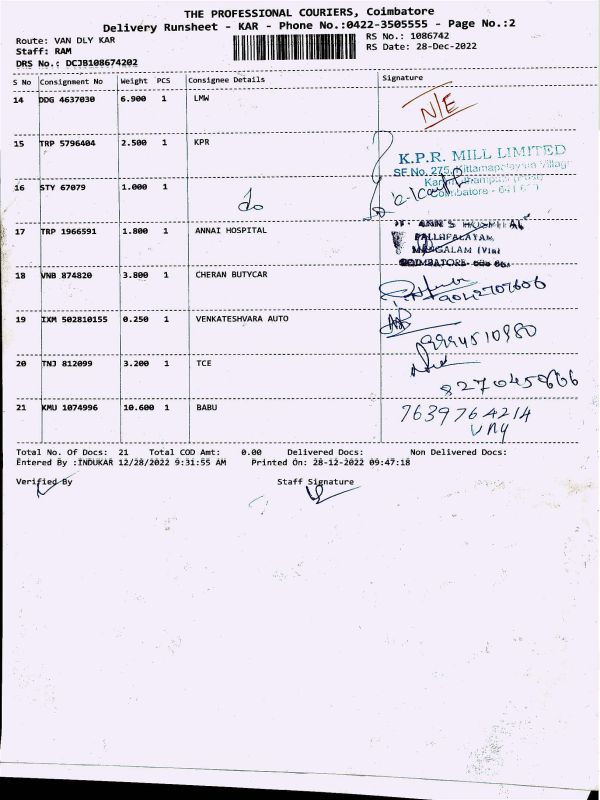 THE PROFESSIONAL COURIERS, Coimbatore
Delivery Runsheet - KAR - Phone No.:0422-3505555 - Page No.:2
Route: VAN DLY KAR
RS No.: 1086742
Staff: RAM
RS Date: 28-Dec-2022
DRS No.: DCJB108674202
S No Consignment No Weight PCS Consignee Details Signature
14 DDG 4637030 6.900 1 LMW N/E
15 TRP 5796404 2.500 1 KPR
K.P.R. MILL LIMITED
SF No. 275,
16 STY 67079 1.000 1 do
Coimbatore - 641
17 TRP 1966591 1.800 1 ANNAI HOSPITAL
PALLAPALAYAM,
MANGALAM (Via)
COIMBATORE-
18 VNB 874820 3.800 1 CHERAN BUTYCAR
9042707606
19 IXM 502810155 0.250 1 VENKATESHVARA AUTO
9994510980
20 TNJ 812099 3.200 1 TCE
21 KMU 1074996 10.600 1 BABU 7639764214
Total No. Of Docs: 21 Total COD Amt: 0.00 Delivered Docs: Non Delivered Docs:
Entered By :INDUKAR 12/28/2022 9:31:55 AM Printed On: 28-12-2022 09:47:18
Verified By Staff Signature